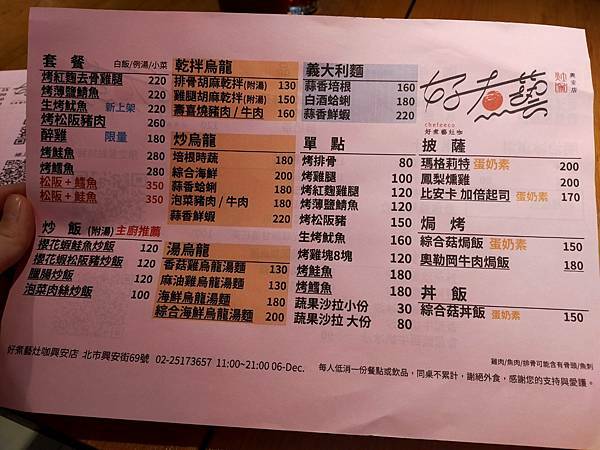 套餐 白飯/例湯/小菜
烤紅麴去骨雞腿 220
烤薄鹽鯖魚 220
生烤魷魚 新上架 220
烤松阪豬肉 260
醉雞 限量 180
烤鮭魚 280
烤鱈魚 280
松阪+鱈魚 350
松阪+鮭魚 350
炒飯 (附湯) 主廚推薦
櫻花蝦鮭魚炒飯 120
櫻花蝦松阪豬炒飯 120
臘腸炒飯 120
泡菜肉絲炒飯 100
乾拌烏龍
排骨胡麻乾拌(附湯) 130
雞腿胡麻乾拌(附湯) 150
壽喜燒豬肉/牛肉 160
炒烏龍
培根時蔬 180
綜合海鮮 200
蒜香蛤蜊 180
泡菜豬肉/牛肉 180
蒜香鮮蝦 220
湯烏龍
香菇雞烏龍湯麵 130
麻油雞烏龍湯麵 130
海鮮烏龍湯麵 180
綜合海鮮烏龍湯麵 200
義大利麵
蒜香培根 160
白酒蛤蜊 180
蒜香鮮蝦 220
單點
烤排骨 80
烤雞腿 100
烤紅麴雞腿 120
烤薄鹽鯖魚 120
烤松阪豬 150
生烤魷魚 160
烤雞翅8塊 120
烤鮭魚 180
烤鱈魚 180
蔬果沙拉小份 30
蔬果沙拉 大份 80
好煮藝
興安店
chefeeco
好煮藝灶咖
披薩
瑪格莉特 蛋奶素 200
鳳梨燻雞 200
比安卡 加倍起司 蛋奶素 170
焗烤
綜合菇焗飯 蛋奶素 150
奧勒岡牛肉焗飯 180
丼飯
綜合菇丼飯 蛋奶素 150
雞肉/魚肉/排骨可能含有骨頭/魚刺
好煮藝灶咖興安店 北市興安街69號 02-25173657 11:00~21:00 06-Dec.
每人低消一份餐點或飲品，同桌不累計，謝絕外食，感謝您的支持與愛護。